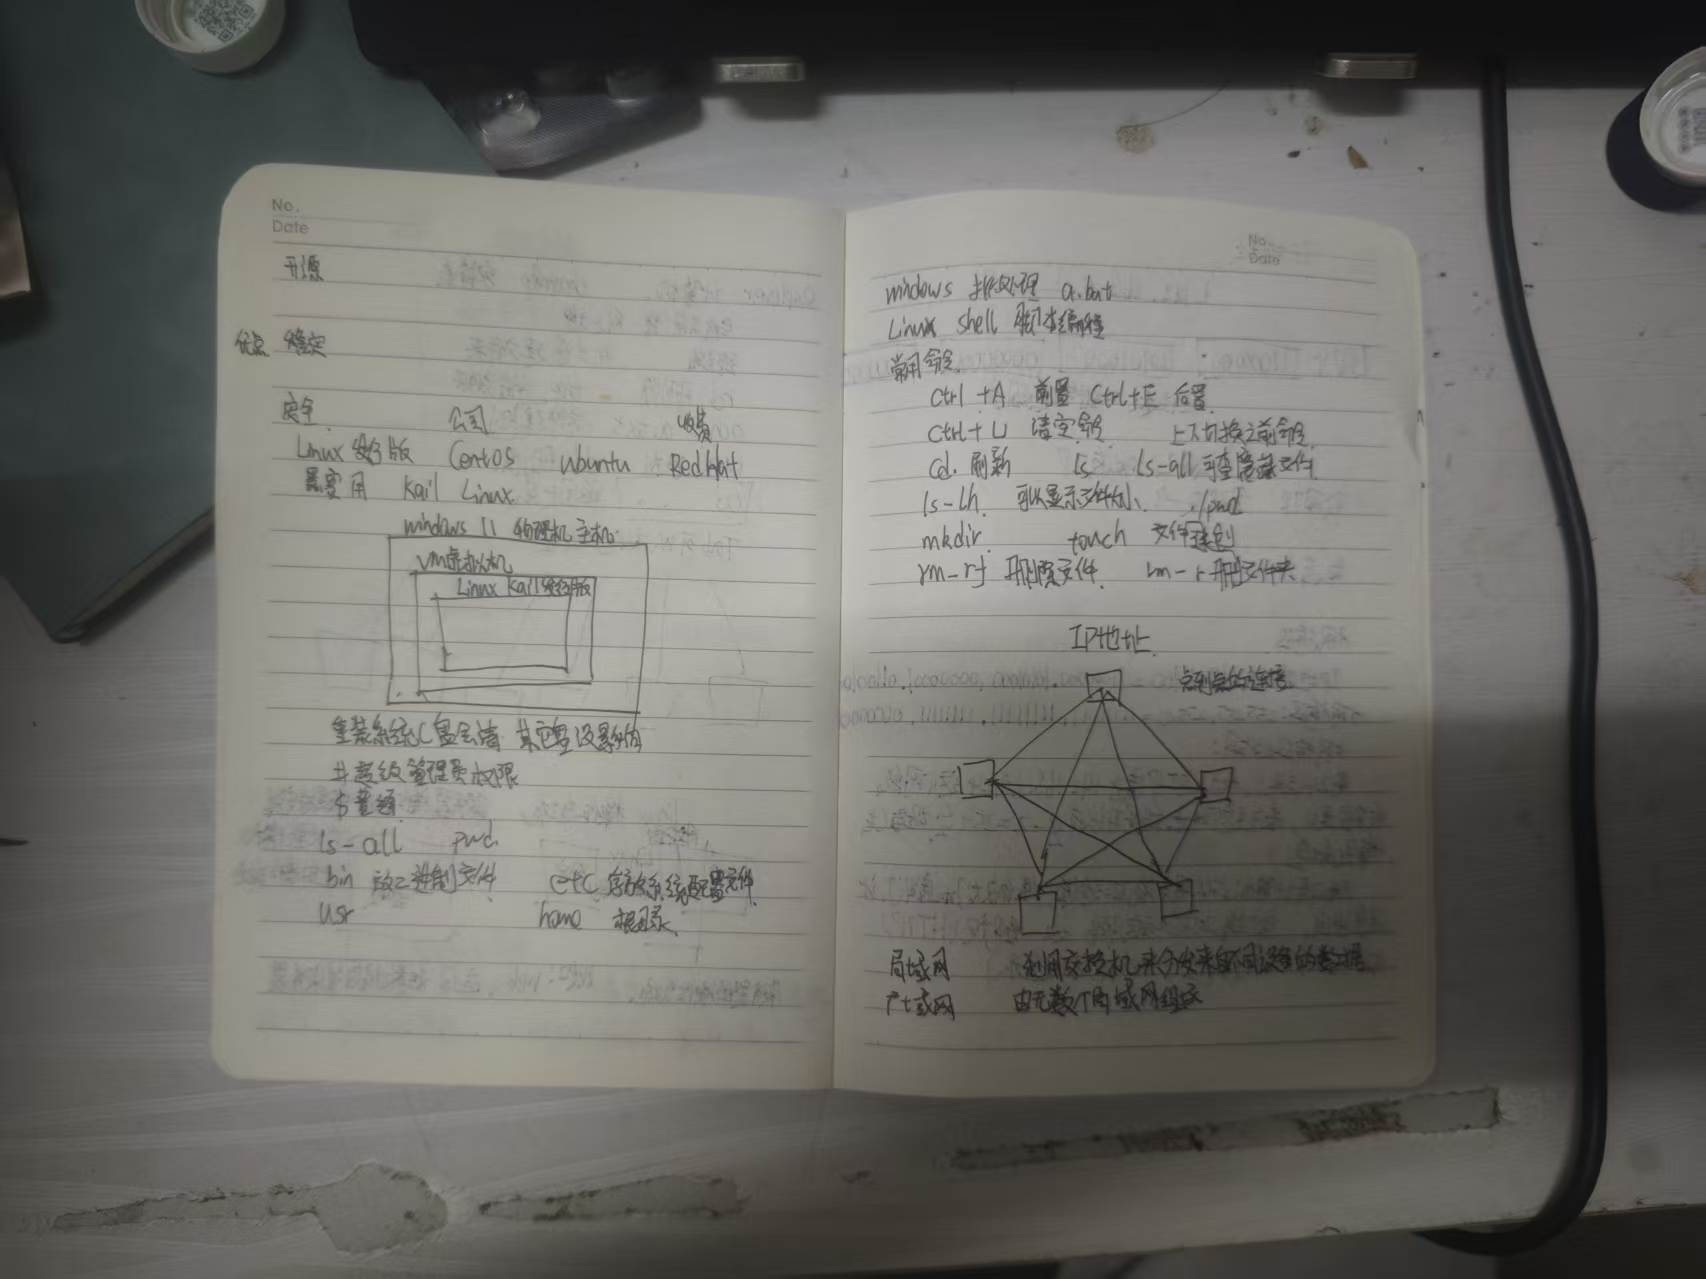 No.
Date
开源
优点 稳定
安全 公司 收费
Linux 发行版 Centos ubuntu RedHat
需要用 Kail Linux
windows 11 物理机 主机
vm虚拟机
Linux Kail 发行版
重装系统C盘会清 其它盘没影响
# 超级管理员权限
$ 普通
ls-all pwd
bin 放二进制文件 etc 存放系统配置文件
usr home 根目录
No.
Date
windows 批处理 a.bat
Linux shell 脚本编程
常用命令
Ctrl +A 前置 Ctrl+E 后置
Ctrl+U 清空命令 上下切换之前命令
cd. 刷新 ls ls-all 可查隐藏文件
ls-lh 可以显示文件大小 ./pwd
mkdir touch 文件
rm-rf 删除文件 rm-r 删文件夹
IP地址
点到点的连接
局域网 利用交换机来分发来自不同设备的数据
广域网 由无数个局域网组成